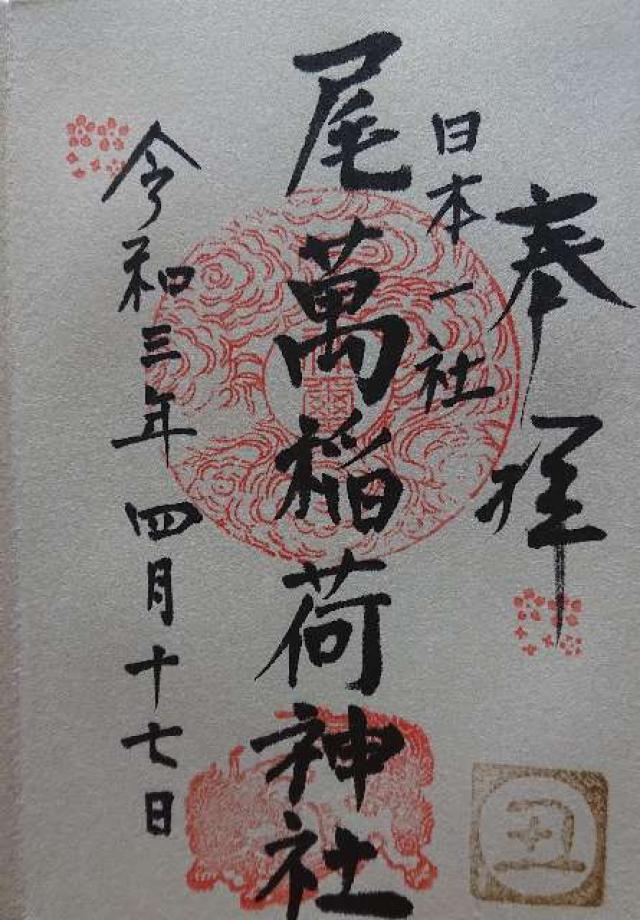 奉拝
日本一社
尾萬稲荷神社
令和三年四月十七日
丑